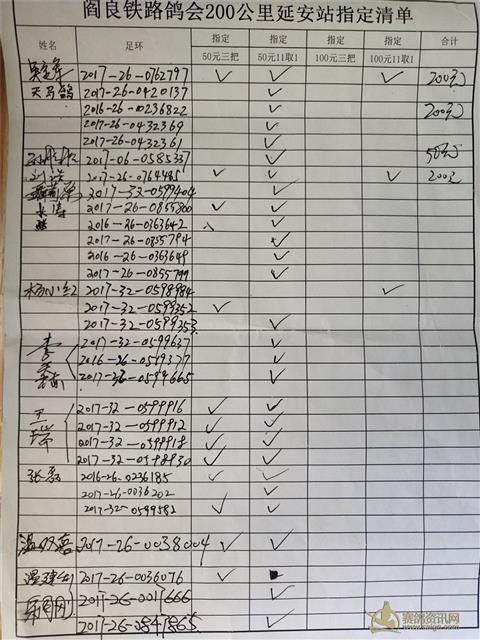 阎良铁路鸽会200公里延安站指定清单
姓名 足环 指定 指定 指定 指定 合计
50元三把 50元11取1 100元三把 100元11取1
2017-26-0762797 ✓ ✓ ✓ 200元
天马鸽 2017-26-0420137 ✓
2016-26-0236822 ✓ 200元
2017-26-0432369 ✓
2017-26-0432361 ✓
2017-06-0585337 ✓ 50元
2017-26-0764485 ✓ ✓ ✓ 200元
2017-32-0599404 ✓
2017-26-0855800 ✓ ✓
2016-26-0363642 ✓
2017-26-0855794 ✓
2016-26-0363649 ✓
2017-26-0855799 ✓
杨小红 2017-32-0598984 ✓
2017-32-0599352 ✓
2017-32-0599353 ✓
2017-32-0599637 ✓
2016-26-0519377 ✓
0599665 ✓
2017-32-0599916 ✓ ✓
2017-32-0599912 ✓ ✓
2017-32-0599918 ✓ ✓
2017-32-0598930 ✓ ✓
张磊 2016-26-0236185 ✓ ✓
2017-26-0036202 ✓
2017-32-0599582 ✓ ✓
温双喜 2017-26-0038004 ✓ ✓
温建 2017-26-0036076 ✓
2017-26-0017666 ✓
2017-26-0847865 ✓
赛鸽资讯网